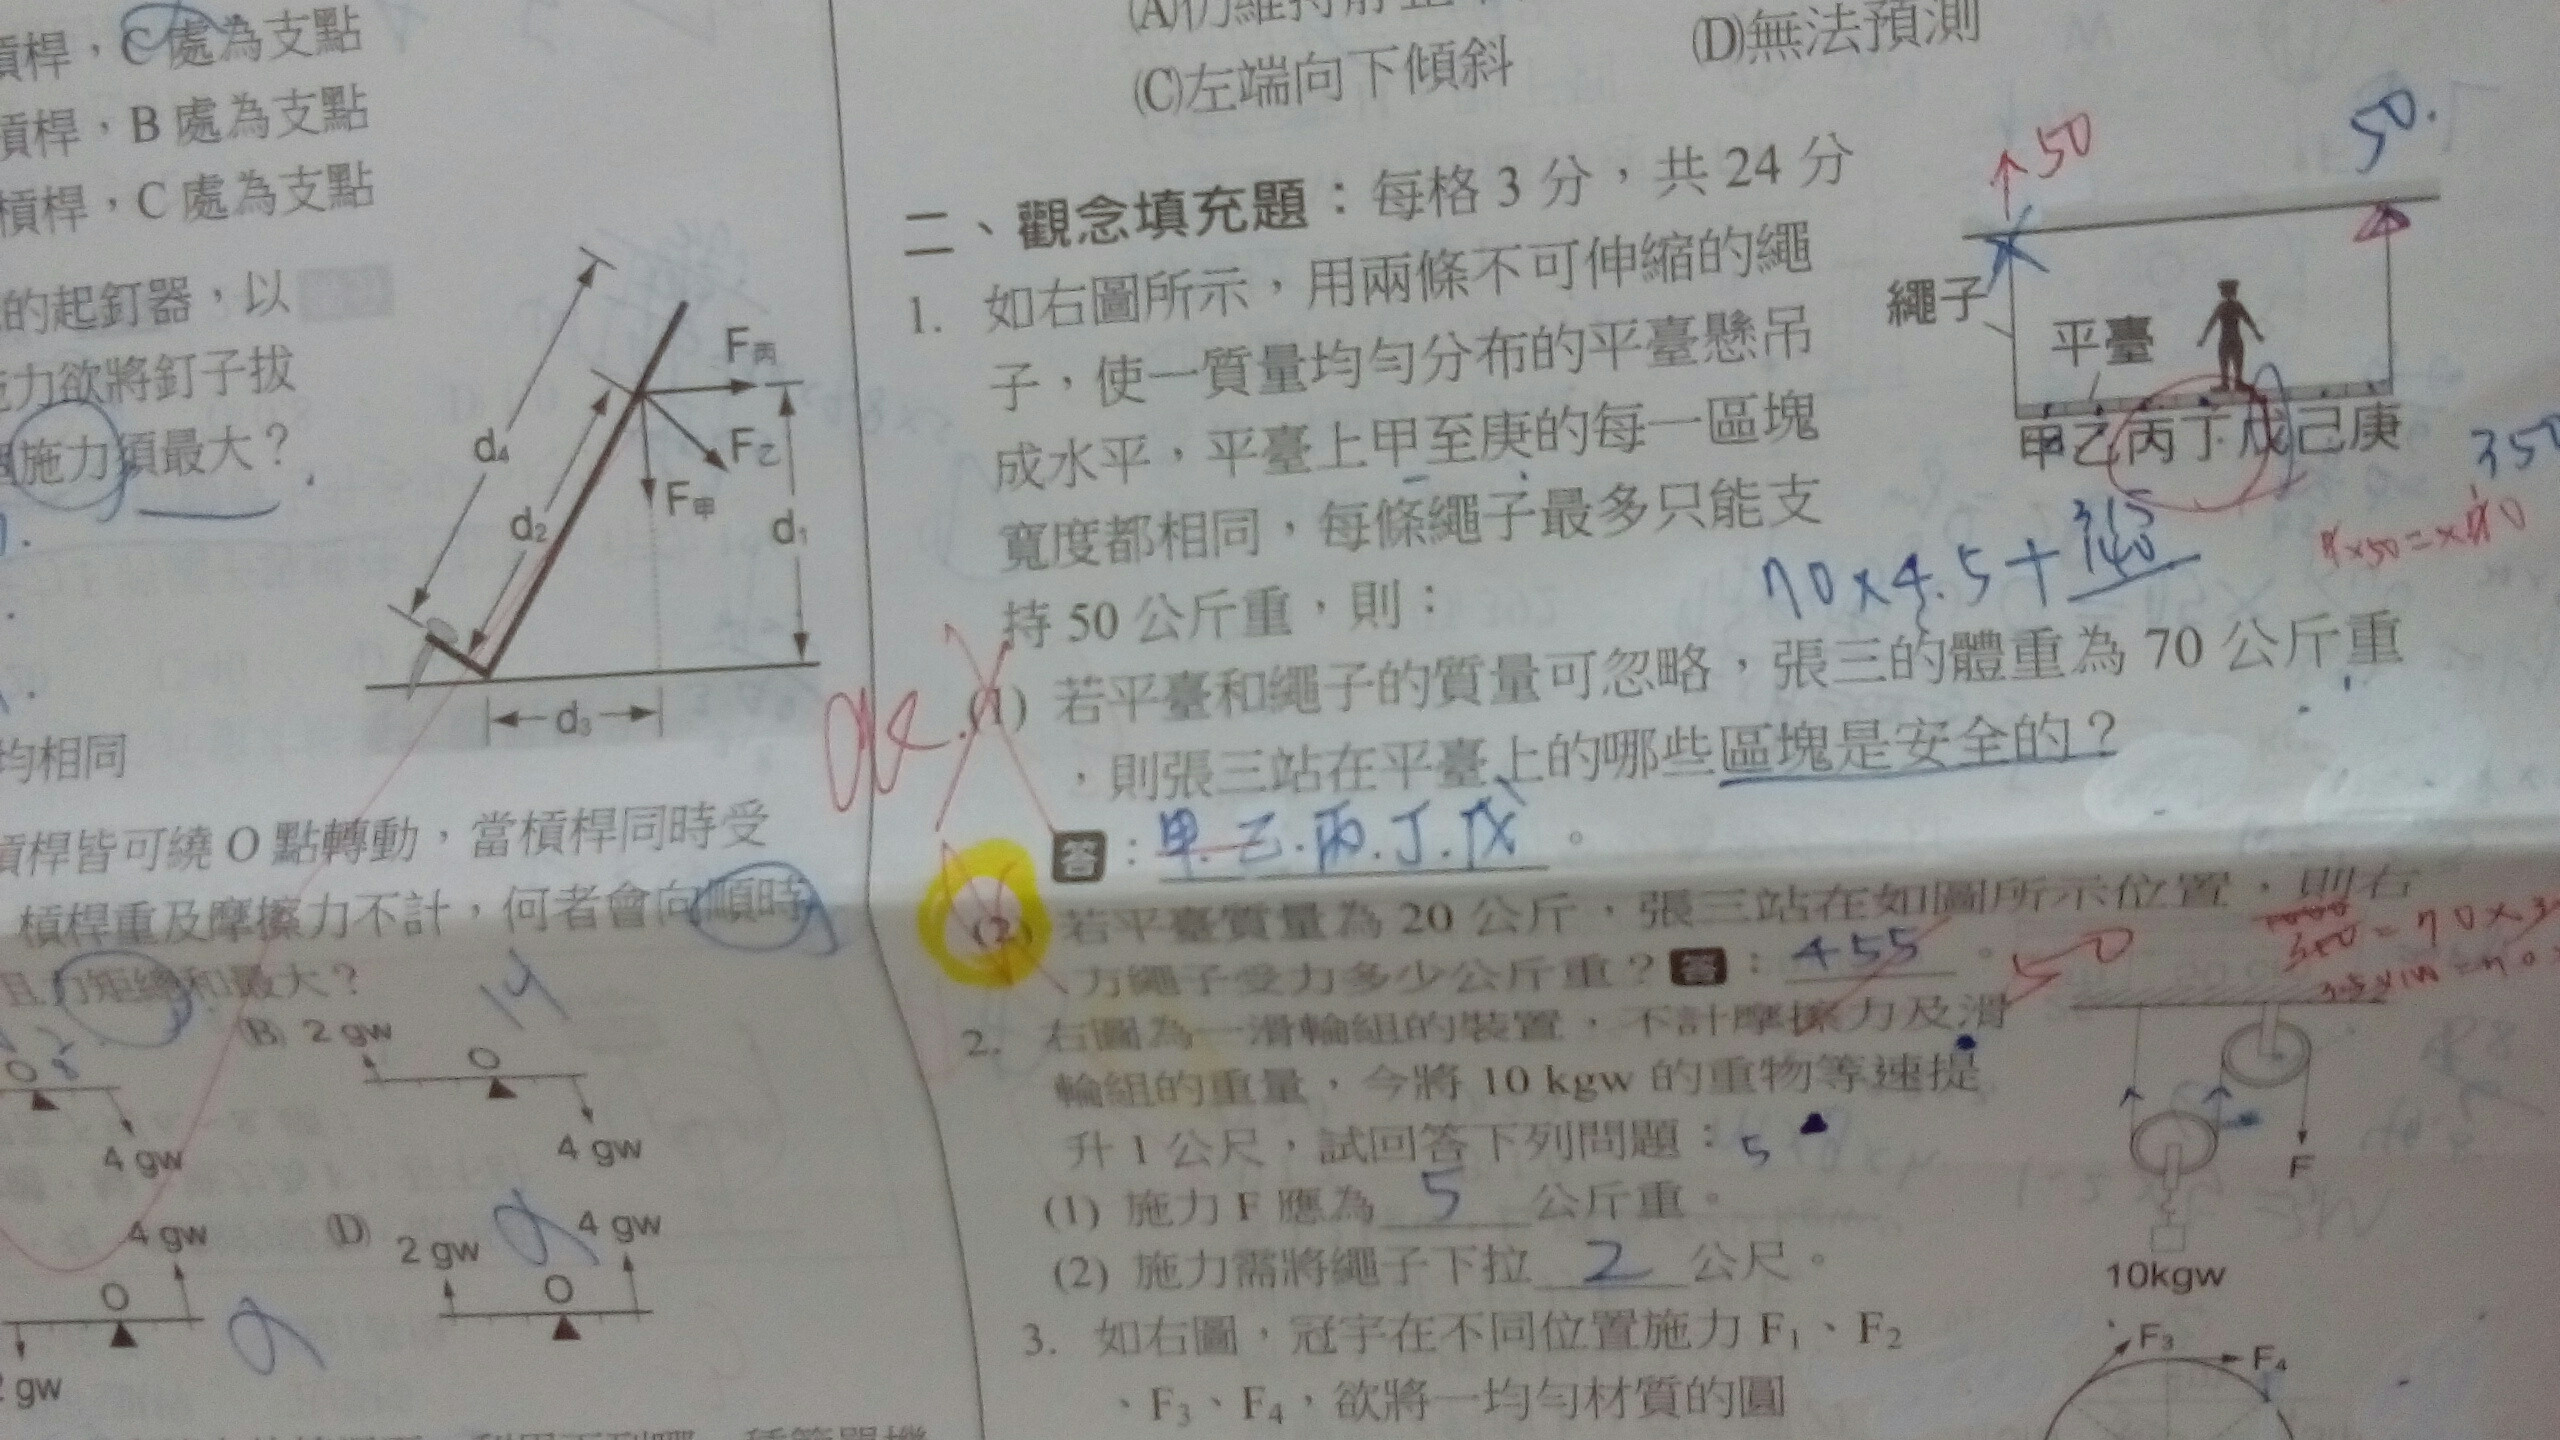 槓桿，C 處為支點
槓桿，B 處為支點
槓桿，C 處為支點
的起釘器，以
力欲將釘子拔
施力須最大？
F丙
F乙
F甲
d4
d2
d1
d3
均相同
槓桿皆可繞 O 點轉動，當槓桿同時受
槓桿重及摩擦力不計，何者會向順時
且力矩總和最大？
14
(B) 2 gw
O
8
O
4 gw
4 gw
4 gw
(D)
2 gw
4 gw
O
O
gw
(C)左端向下傾斜
(D)無法預測
二、觀念填充題：每格 3 分，共 24 分
1. 如右圖所示，用兩條不可伸縮的繩
子，使一質量均勻分布的平臺懸吊
成水平，平臺上甲至庚的每一區塊
寬度都相同，每條繩子最多只能支
持 50 公斤重，則：
↑50
50.
繩子
平臺
甲乙丙丁戊己庚
350
70×4.5+
315
140
(1) 若平臺和繩子的質量可忽略，張三的體重為 70 公斤重
，則張三站在平臺上的哪些區塊是安全的？
答：甲.乙.丙.丁.戊。
(2) 若平臺質量為 20 公斤，張三站在如圖所示位置，則右
方繩子受力多少公斤重？答：455。
50
350=70×3
2. 右圖為一滑輪組的裝置，不計摩擦力及滑
輪組的重量，今將 10 kgw 的重物等速提
升 1 公尺，試回答下列問題：
5
(1) 施力 F 應為 5 公斤重。
(2) 施力需將繩子下拉 2 公尺。
F
10kgw
3. 如右圖，冠宇在不同位置施力 F1、F2
、F3、F4，欲將一均勻材質的圓
F3
F4